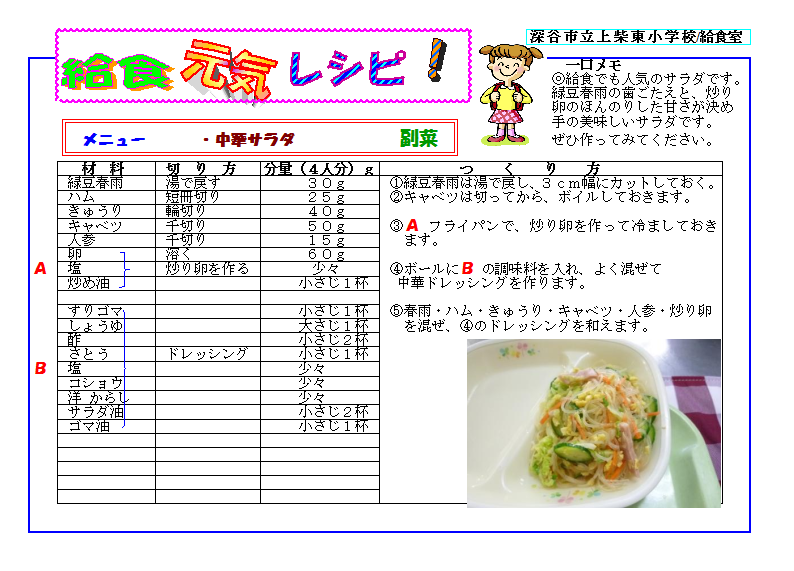 深谷市立上柴東小学校/給食室
給食元気レシピ!
一口メモ
◎給食でも人気のサラダです。
緑豆春雨の歯ごたえと、炒り
卵のほんのりした甘さが決め
手の美味しいサラダです。
ぜひ作ってみてください。
メニュー ・中華サラダ 副菜
材料 切り方 分量(4人分)g つくり方
緑豆春雨 湯で戻す 30g
ハム 短冊切り 25g
きゅうり 輪切り 40g
キャベツ 千切り 50g
人参 千切り 15g
卵 溶く 60g
A 塩 炒り卵を作る 少々
炒め油 小さじ1杯
すりゴマ 小さじ1杯
しょうゆ 大さじ1杯
酢 小さじ2杯
さとう ドレッシング 小さじ1杯
B 塩 少々
コショウ 少々
洋 からし 少々
サラダ油 小さじ2杯
ゴマ油 小さじ1杯
①緑豆春雨は湯で戻し、3cm幅にカットしておく。
②キャベツは切ってから、ボイルしておきます。
③A フライパンで、炒り卵を作って冷ましておき
ます。
④ボールにB の調味料を入れ、よく混ぜて
中華ドレッシングを作ります。
⑤春雨・ハム・きゅうり・キャベツ・人参・炒り卵
を混ぜ、④のドレッシングを和えます。